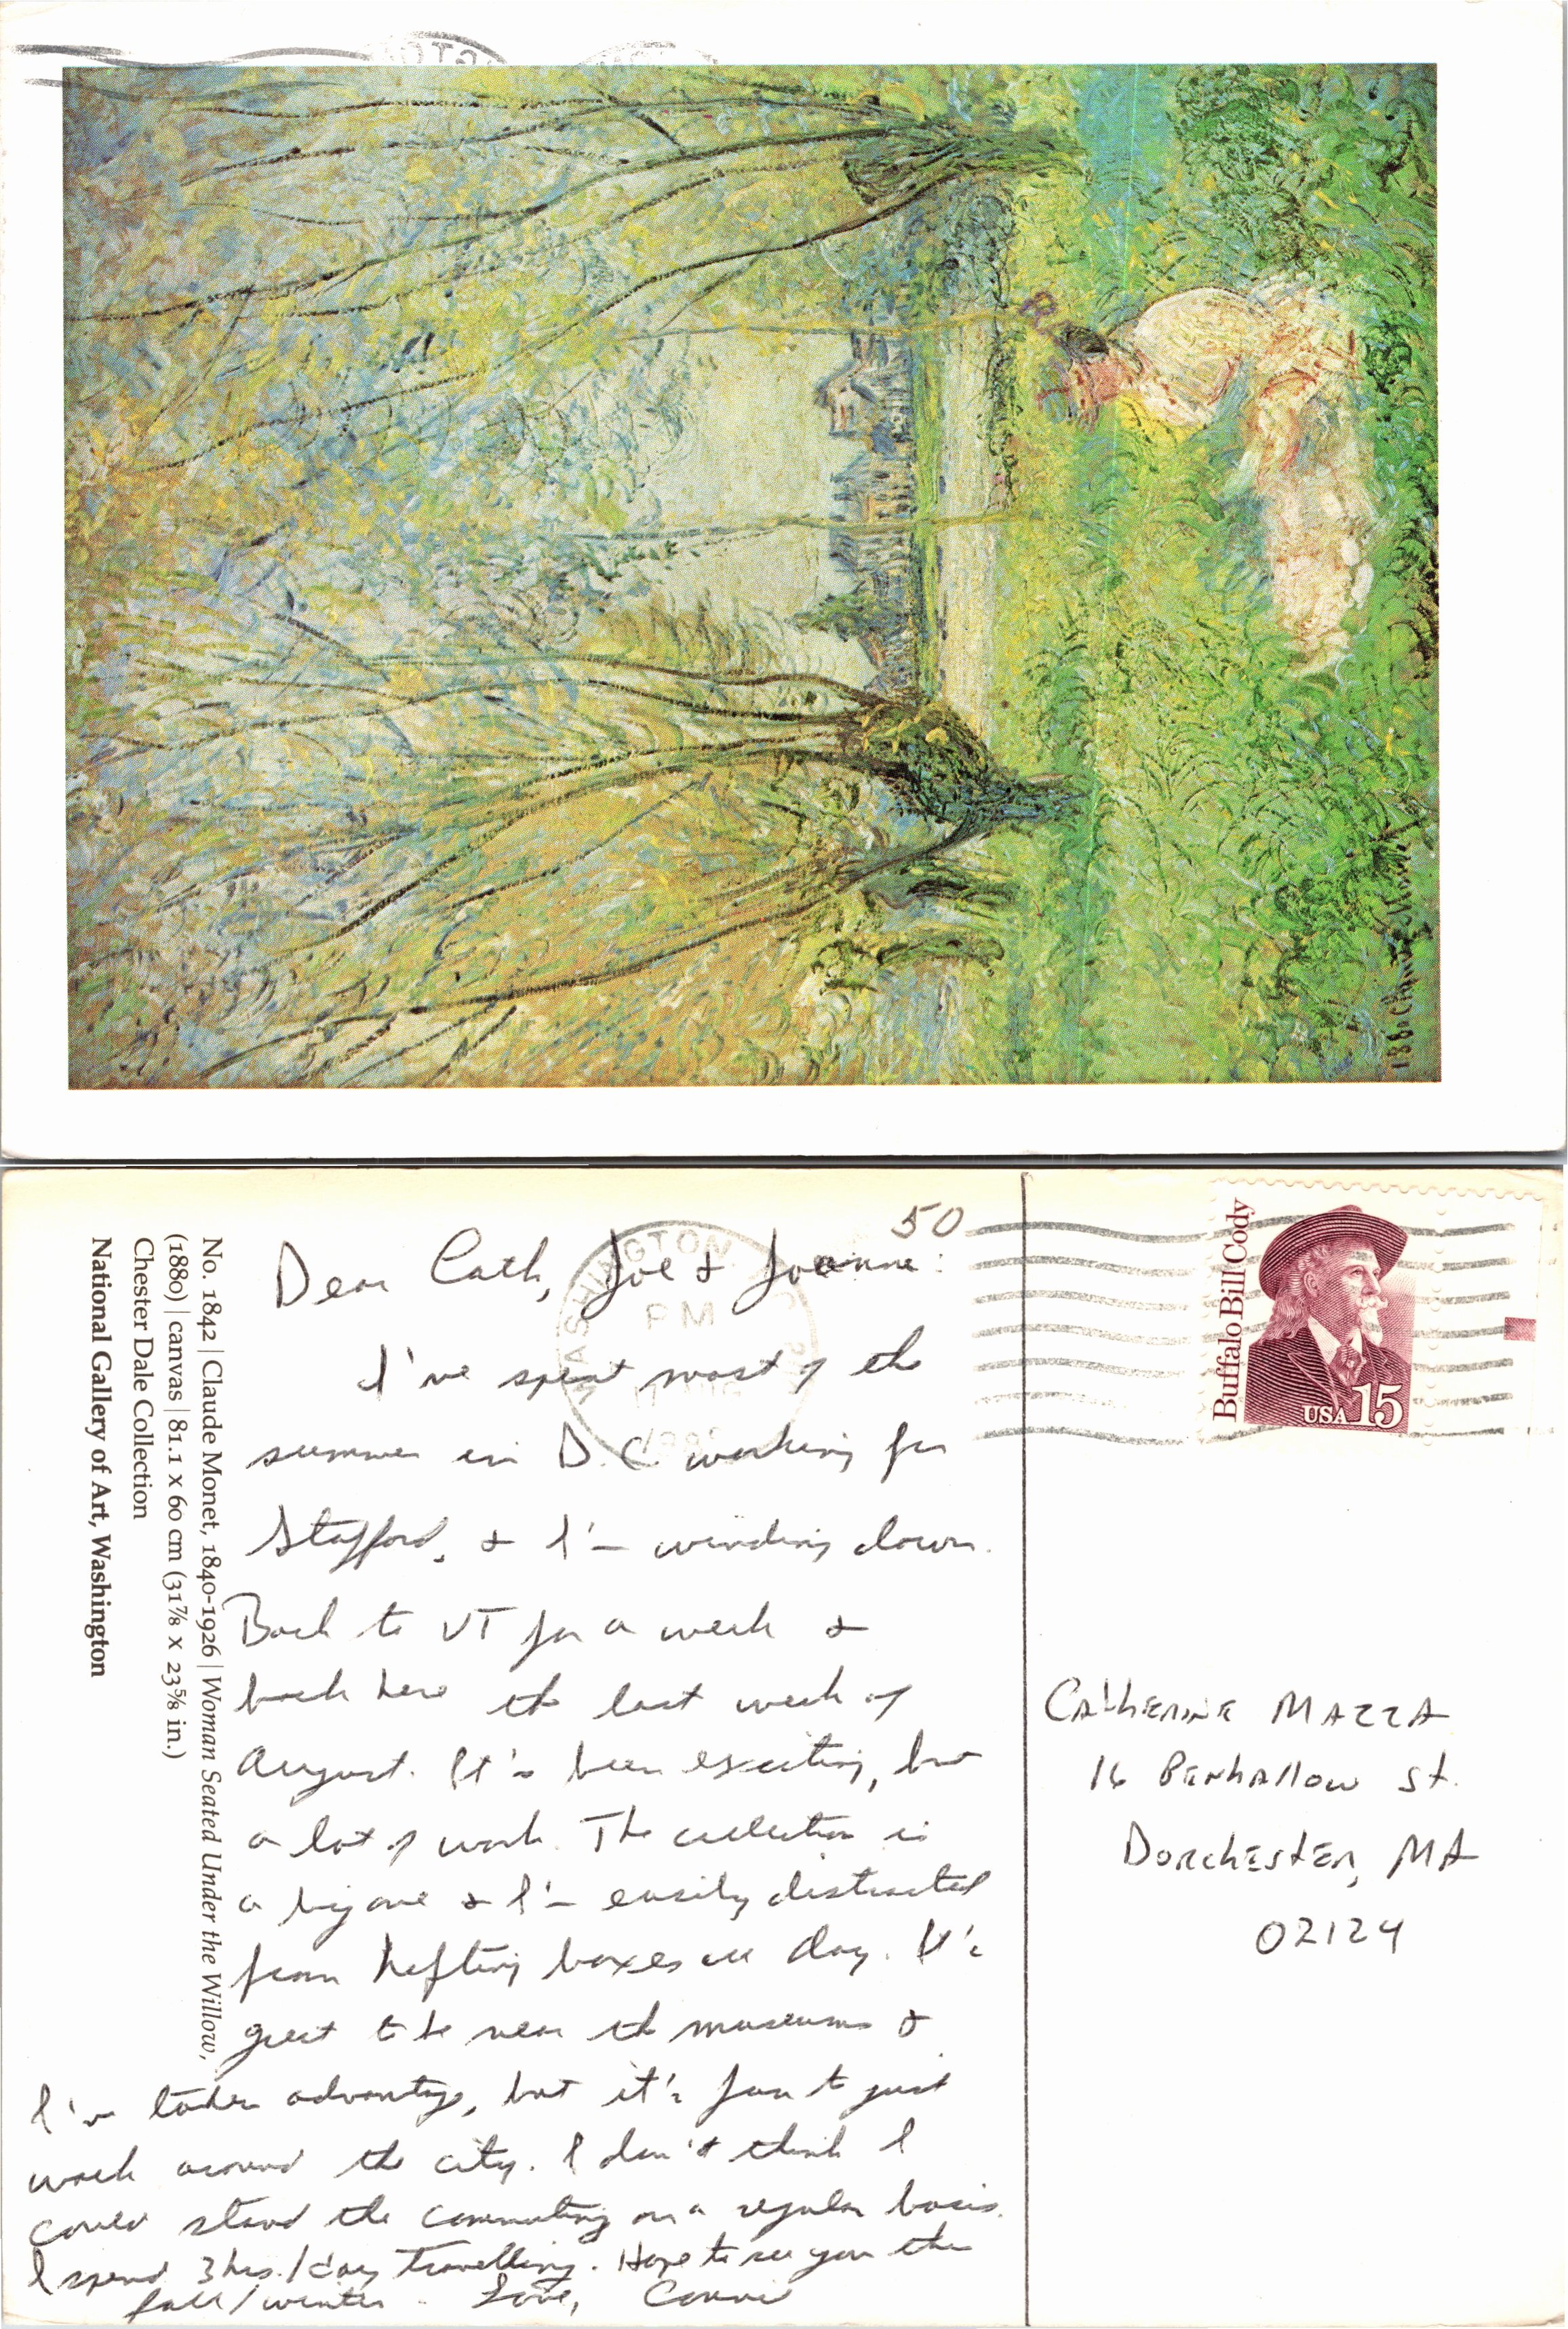 1880 Claude Monet
No. 1842 | Claude Monet, 1840-1926 | Woman Seated Under the Willow,
(1880) | canvas | 81.1 x 60 cm (31⅞ x 23⅝ in.)
Chester Dale Collection
National Gallery of Art, Washington
50
WASHINGTON
PM
Dear Cath, Joe & Joanne:
I've spent most of the
summer in D.C. working for
Stafford, & I'm winding down.
Back to VT for a week &
back here the last week of
August. It's been exciting, but
a lot of work. The collection is
a big one & I'm easily distracted
from hefting boxes all day. It's
great to be near the museums &
I've taken advantage, but it's fun to just
walk around the city. I don't think I
could stand the commuting on a regular basis.
I spend 3 hrs./day travelling. Hope to see you the
fall/winter. Love, Connie
Buffalo Bill Cody
USA 15
Catherine Mazza
16 Penhallow St.
Dorchester, MA
02124